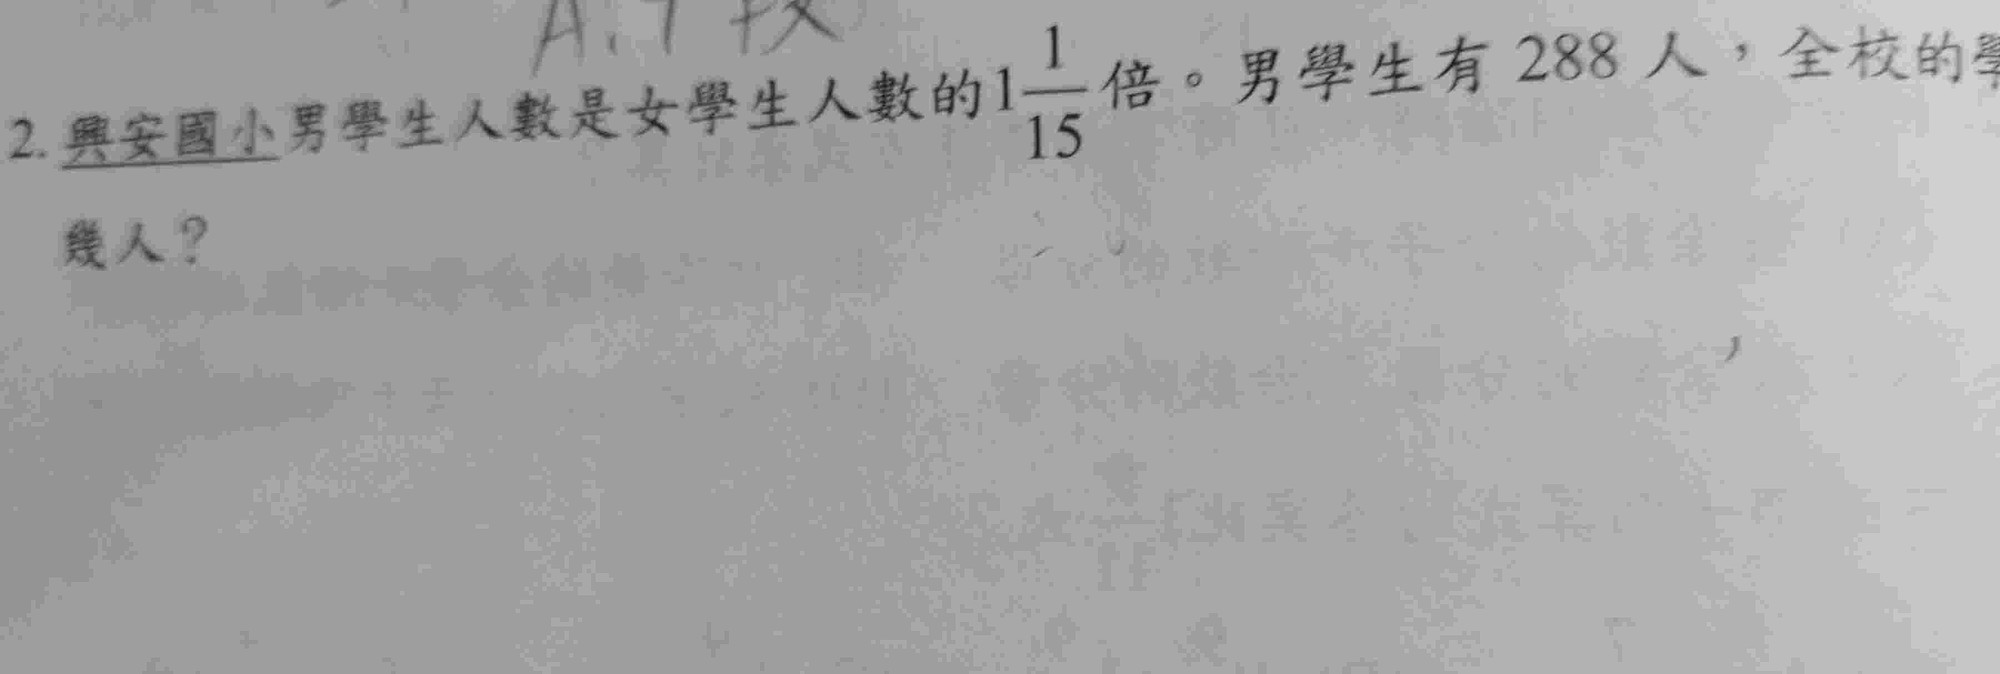 2. 興安國小男學生人數是女學生人數的1 1/15 倍。男學生有 288 人，全校的學
幾人？